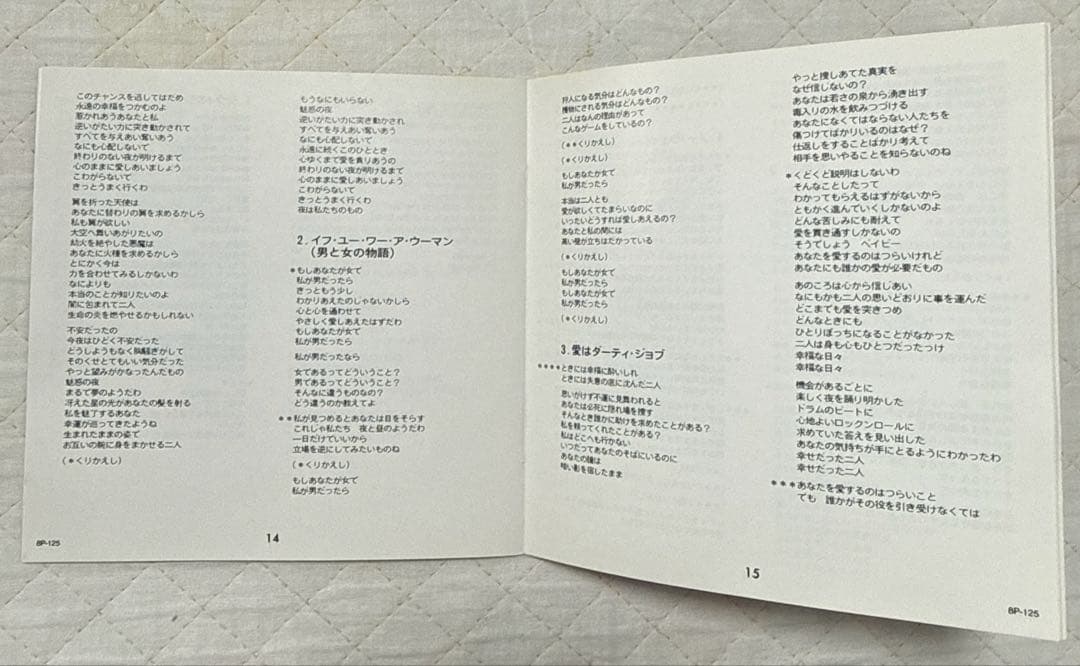 このチャンスを逃してはだめ
永遠の幸福をつかむのよ
惹かれあうあなたと私
逆いがたい力に突き動かされて
すべてを与えあい奪いあう
なにも心配しないで
終わりのない夜が明けるまで
心のままに愛しあいましょう
こわがらないで
きっとうまく行くわ
翼を折った天使は
あなたに替わりの翼を求めるかしら
私も翼が欲しい
大空へ舞いあがりたいの
劫火を絶やした悪魔は
あなたに火種を求めるかしら
とにかく今は
力を合わせてみるしかないわ
なによりも
本当のことが知りたいのよ
闇に包まれて二人
生命の炎を燃やせるかもしれない
不安だったの
今夜はひどく不安だった
どうしようもなく胸騒ぎがして
そのくせとてもいい気分だった
やっと望みがかなったんだもの
魅惑の夜
まるで夢のようだわ
冴えた星の光があなたの髪を射る
私を魅了するあなた
幸運が巡ってきたようね
生まれたままの姿で
お互いの腕に身をまかせる二人
(*くりかえし)
もうなにもいらない
魅惑の夜
逆いがたい力に突き動かされ
すべてを与えあい奪いあう
なにも心配しないで
永遠に続くこのひととき
心ゆくまで愛を貪りあうの
終わりのない夜が明けるまで
心のままに愛しあいましょう
こわがらないで
きっとうまく行くわ
夜は私たちのもの
2.イフ・ユー・ワー・ア・ウーマン
(男と女の物語)
*もしあなたが女で
私が男だったら
きっともう少し
わかりあえたのじゃないかしら
心と心を通わせて
やさしく愛しあえたはずだわ
もしあなたが女で
私が男だったら
私が男だったなら
女であるってどういうこと?
男であるってどういうこと?
そんなに違うものなの?
どう違うのか教えてよ
**私が見つめるとあなたは目をそらす
これじゃ私たち 夜と昼のようだわ
一日だけでいいから
立場を逆にしてみたいものね
(*くりかえし)
もしあなたが女で
私が男だったら
8P-125
14
狩人になる気分はどんなもの?
獲物にされる気分はどんなもの?
二人はなんの理由があって
こんなゲームをしているの?
(**くりかえし)
(*くりかえし)
もしあなたが女で
私が男だったら
本当は二人とも
愛が欲しくてたまらないなのに
いったいどうすれば愛しあえるの?
あなたと私の間には
高い壁が立ちはだかっている
(*くりかえし)
もしあなたが女で
私が男だったら
もしあなたが女で
私が男だったら
(*くりかえし)
3.愛はダーティ・ジョブ
****ときには幸福に酔いしれ
ときには失意の底に沈んだ二人
思いがけず不運に見舞われると
あなたは必死に隠れ場を捜す
そんなとき誰かに助けを求めたことがある?
私を頼ってくれたことがある?
私はどこへも行かない
いつだってあなたのそばにいるのに
あなたの瞳は
暗い影を宿したまま
やっと捜しあてた真実を
なぜ信じないの?
あなたは若さの泉から湧き出す
毒入りの水を飲みつづける
あなたになくてはならない人たちを
傷つけてばかりいるのはなぜ?
仕返しをすることばかり考えて
相手を思いやることを知らないのね
*くどくど説明はしないわ
そんなことしたって
わかってもらえるはずがないから
ともかく進んでいくしかないのよ
どんな苦しみにも耐えて
愛を貫き通すしかないの
そうでしょう ベイビー
あなたを愛するのはつらいけれど
あなたにも誰かの愛が必要だもの
あのころは心から信じあい
なにもかも二人の思いどおりに事を運んだ
どこまでも愛を突きつめ
どんなときにも
ひとりぼっちになることがなかった
二人は身も心もひとつだったっけ
幸福な日々
幸福な日々
機会があるごとに
楽しく夜を踊り明かした
ドラムのビートに
心地よいロックンロールに
求めていた答えを見い出した
あなたの気持ちが手にとるようにわかったわ
幸せだった二人
幸せだった二人
***あなたを愛するのはつらいこと
でも 誰かがその役を引き受けなくては
15
8P-125